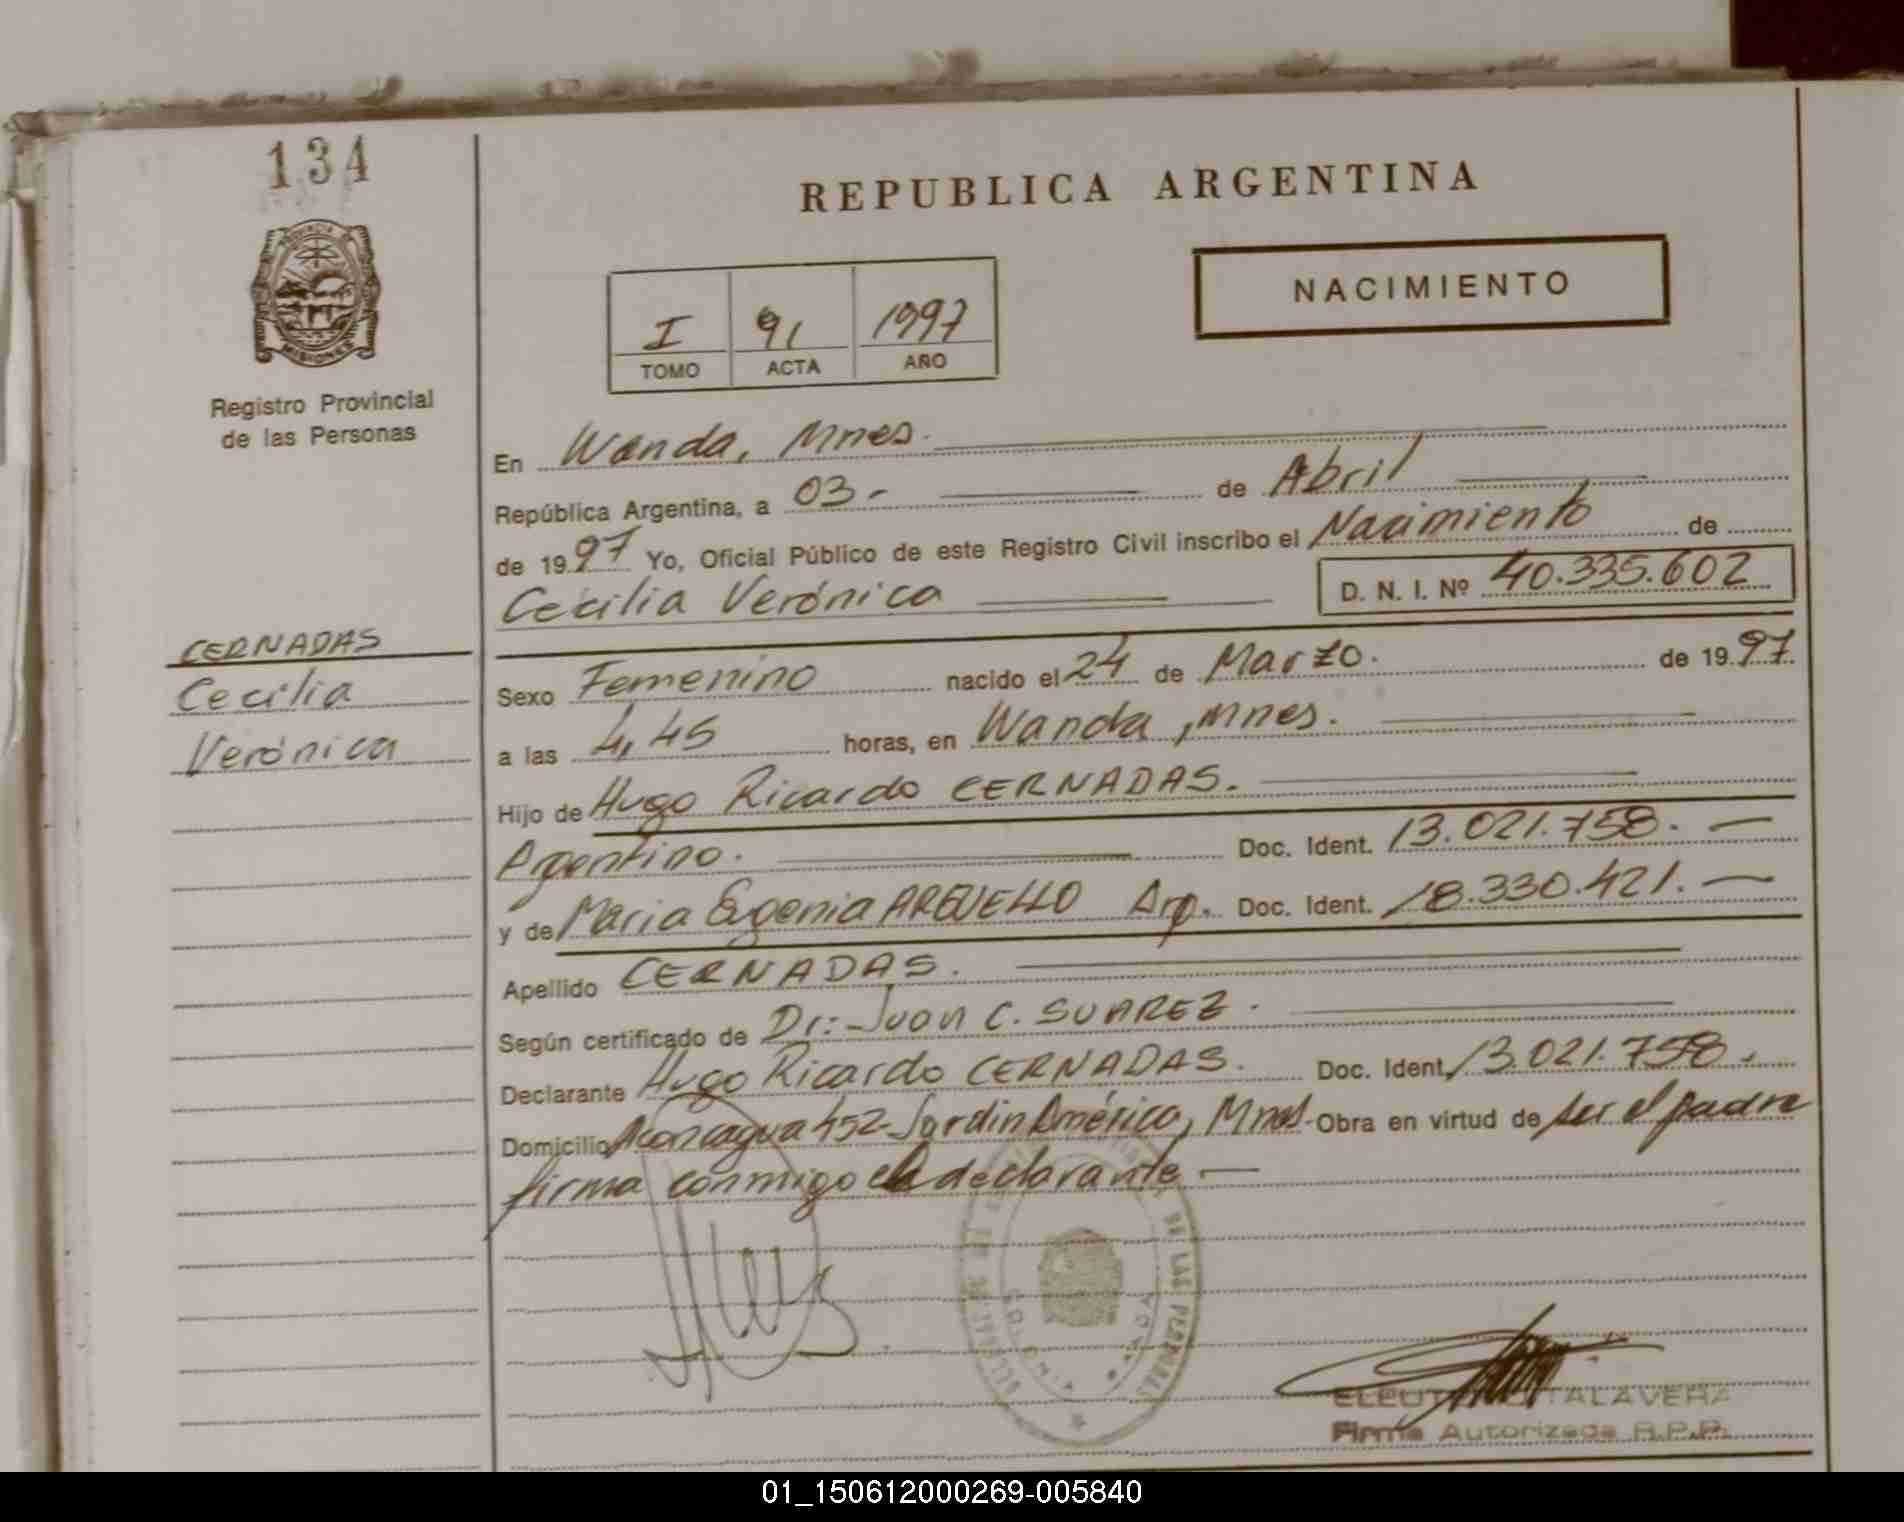 134
REPUBLICA ARGENTINA
NACIMIENTO
I 91 1997
TOMO ACTA AÑO
MISIONES
Registro Provincial
de las Personas
En Wanda, Mnes.
República Argentina, a 03- de Abril
de 1997 Yo, Oficial Público de este Registro Civil inscribo el Nacimiento de
Cecilia Verónica D. N. I. Nº 40.335.602
CERNADAS
Cecilia
Verónica
Sexo Femenino nacido el 24 de Marzo. de 1997.
a las 4,45 horas, en Wanda, Mnes.
Hijo de Hugo Ricardo CERNADAS.
Argentino. Doc. Ident. 13.021.758.
y de Maria Eugenia ARGUELLO Arg. Doc. Ident. 18.330.421.
Apellido CERNADAS.
Según certificado de Dr: Juan C. SUAREZ.
Declarante Hugo Ricardo CERNADAS. Doc. Ident. 13.021.758.
Domicilio Aconcagua 452-Jardin América, Mnes. Obra en virtud de ser el padre
firma conmigo el declarante
DE LAS PERSONAS
COLONIA WANDA
TALAVERA
Firma Autorizada R.P.P.
01_150612000269-005840